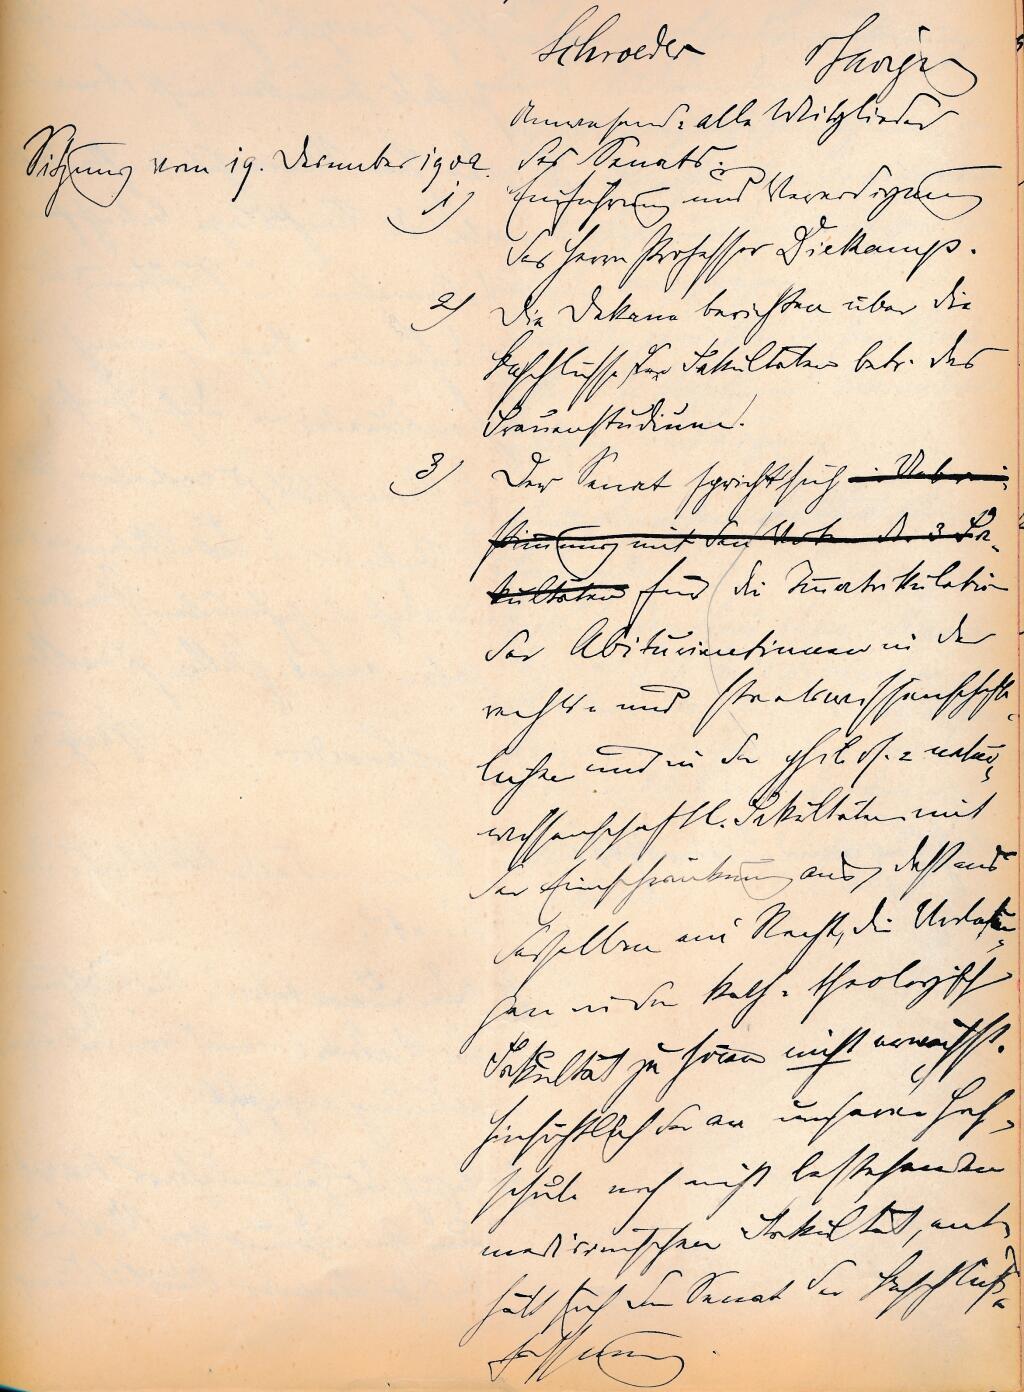 Schroeder
Anwesend: alle Mitglieder
Sitzung vom 19. Dezember 1902. des Senats.
1) Einführung und Vereidigung
des Herrn Professor Diekamp.
2) Die Dekane berichten über die
Beschlüsse der Fakultäten betr. des
Frauenstudiums.
3) Der Senat spricht sich in Ueberein-
stimmung mit den Voten der 3 Fa-
kultäten für die Immatrikulation
der Abiturientinnen in der
rechts- und staatswissenschaft-
lichen und in der philos. = natur-
wissenschaftl. Fakultäten mit
der Einschränkung aus, daß aus
derselben ein Recht, die Vorlesun-
gen in der kath.-theologisch
Fakultät zu hören nicht erwächst.
Hinsichtlich der an unserer Hoch-
schule noch nicht bestehenden
medicinischen Fakultät, ent-
hält sich der Senat der Beschluß-
fassung.